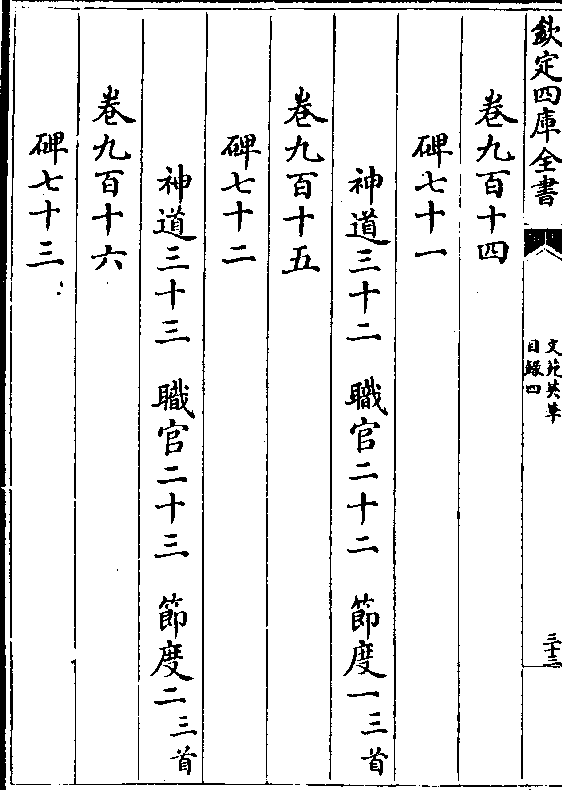 欽定四庫全書
文苑英華
目錄四
三十三
卷九百十四
碑七十一
神道三十二 職官二十二 節度一三首
卷九百十五
碑七十二
神道三十三 職官二十三 節度二三首
卷九百十六
碑七十三